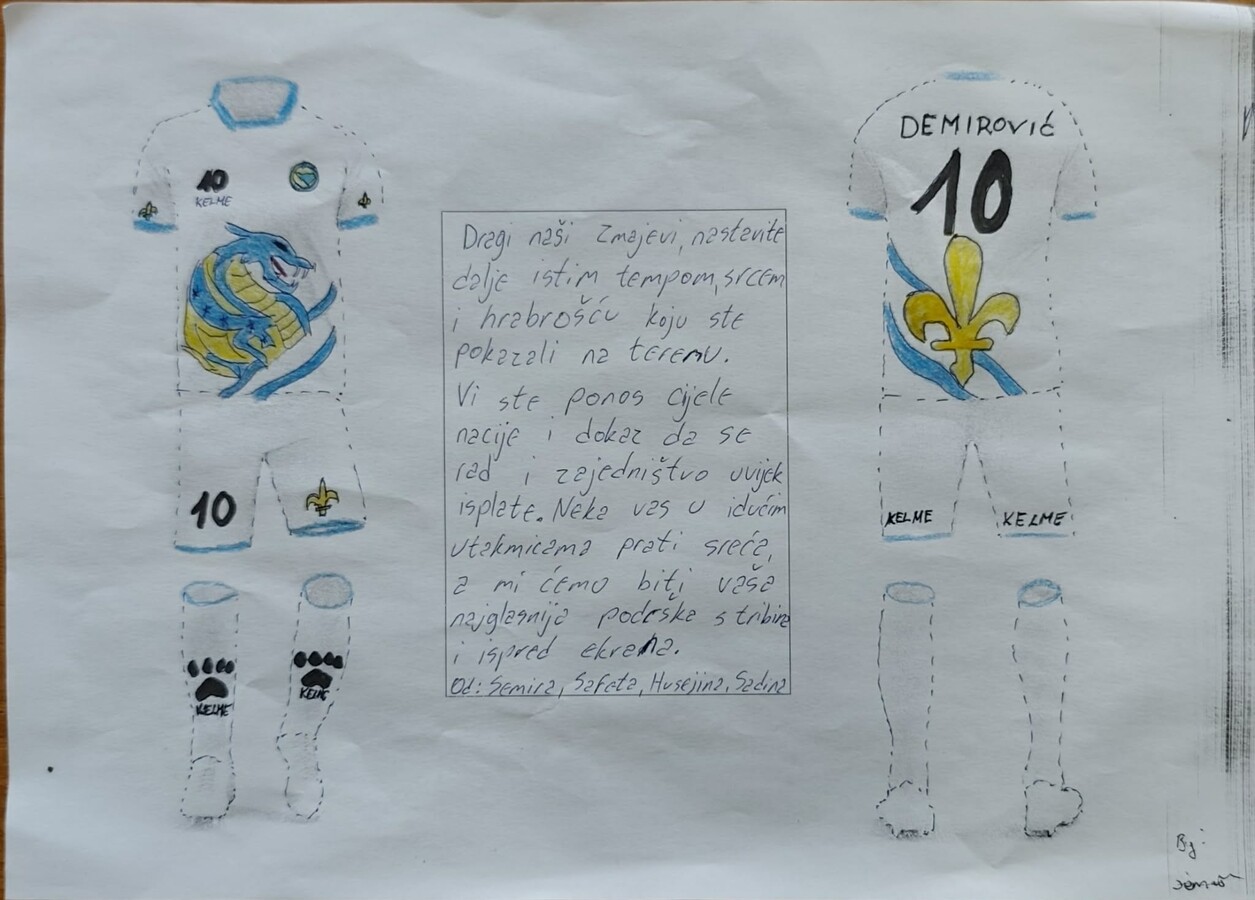 10
KELME
10
KELME
KELME
Dragi naši Zmajevi, nastavite
dalje istim tempom, srcem
i hrabrošću koju ste
pokazali na terenu.
Vi ste ponos cijele
nacije i dokaz da se
rad i zajedništvo uvijek
isplate. Neka vas u idućim
utakmicama prati sreća,
a mi ćemo biti vaša
najglasnija podrška s tribina
i ispred ekrana.
Od: Semira, Safeta, Husejina, Sadina
DEMIROVIĆ
10
KELME
KELME
By: